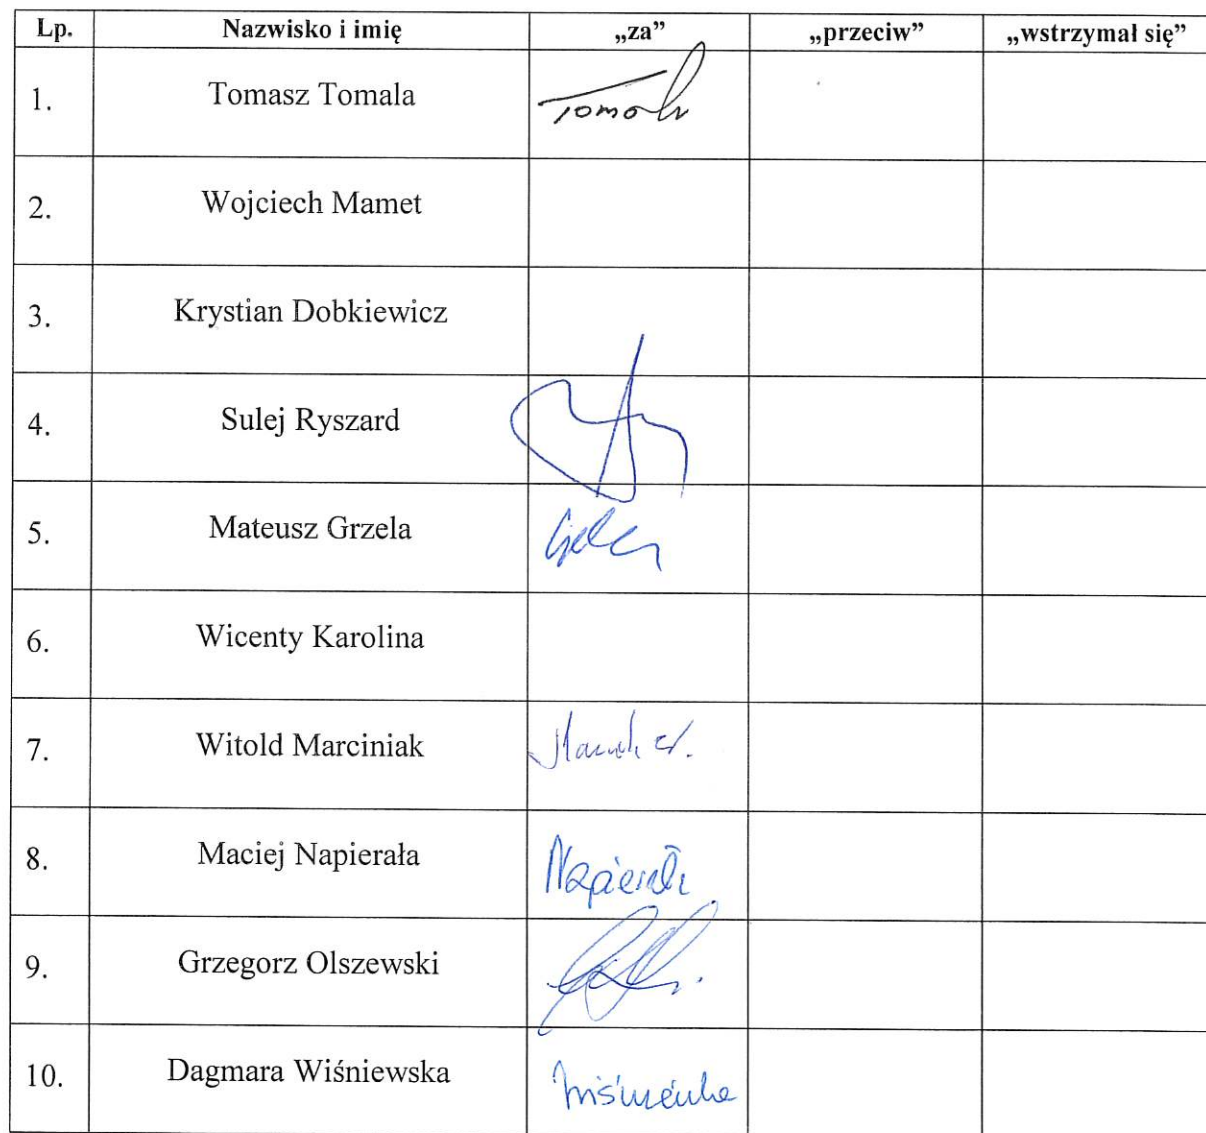 Lp. Nazwisko i imię „za” „przeciw” „wstrzymał się”
1. Tomasz Tomala Tomala
2. Wojciech Mamet
3. Krystian Dobkiewicz
4. Sulej Ryszard
5. Mateusz Grzela
6. Wicenty Karolina
7. Witold Marciniak
8. Maciej Napierała Napierała
9. Grzegorz Olszewski
10. Dagmara Wiśniewska